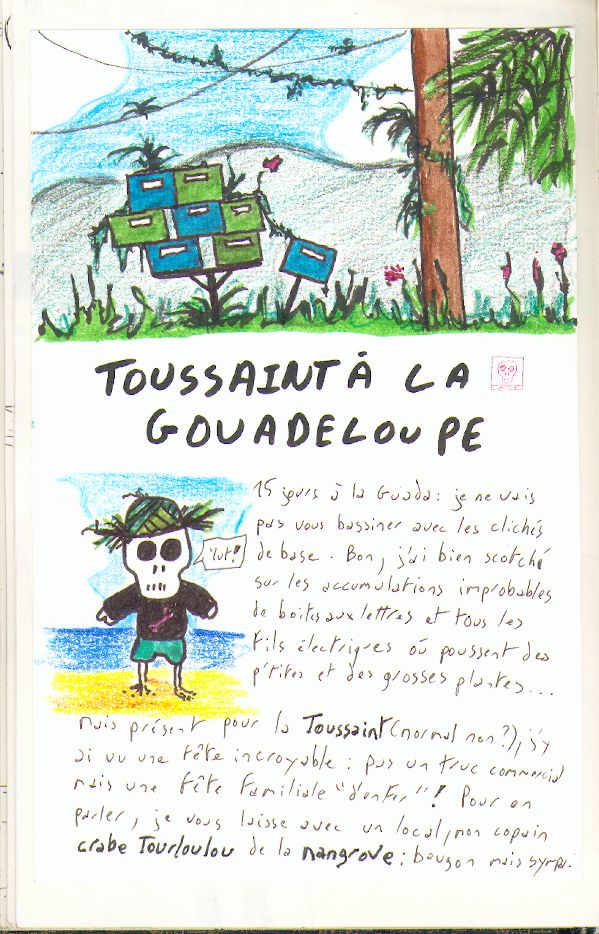 TOUSSAINT À LA
GOUADELOUPE
15 jours à la Guada : je ne vais
pas vous bassiner avec les clichés
de base. Bon, j'ai bien scotché
sur les accumulations improbables
de boites aux lettres et tous les
fils électriques où poussent des
p'tites et des grosses plantes...
'lut!
Mais présent pour la Toussaint (normal non?), j'y
ai vu une fête incroyable : pas un truc commercial
mais une fête familiale "d'enfer"! Pour en
parler, je vous laisse avec un local, mon copain
crabe Tourloulou de la mangrove : bougon mais sympa.